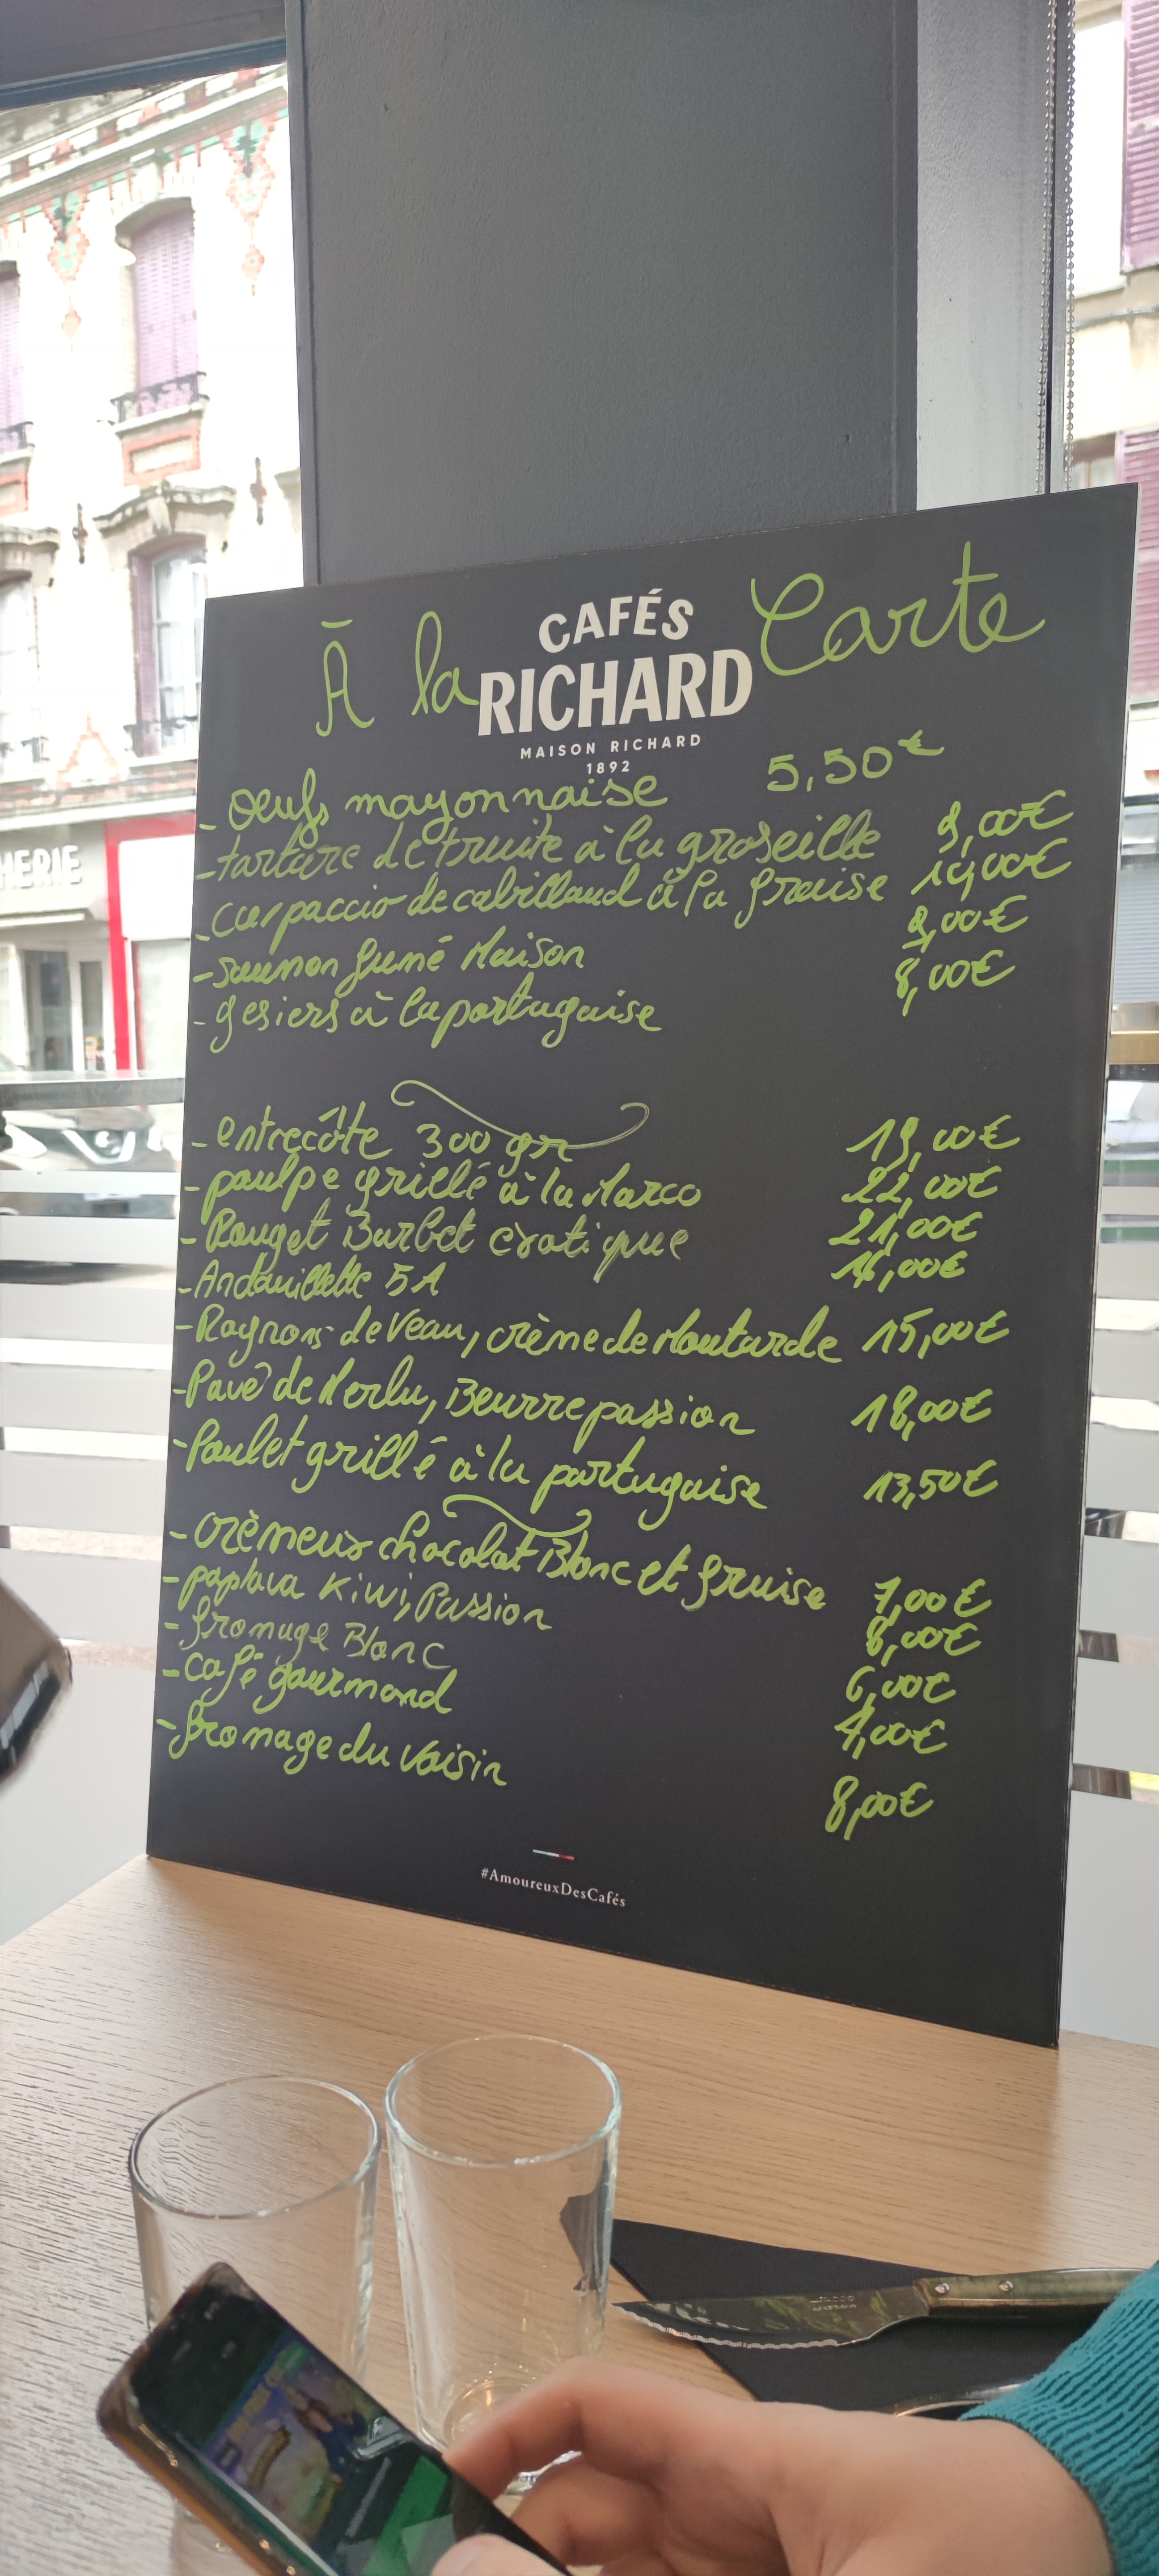 À la Carte
CAFÉS
RICHARD
MAISON RICHARD
1892
- Oeufs mayonnaise 5,50€
- tartare de truite à la groseille 9,00€
- Carpaccio de cabillaud à la fraise 10,00€
- saumon fumé Maison 9,00€
- gesiers à la portugaise 8,00€
- entrecôte 300 gr 19,00€
- poulpe grillé à la Marco 22,00€
- Rouget Barbet 21,00€
- Andouillette 5A 16,00€
- Rognons de Veau, crème de Moutarde 15,00€
- Pavé de Merlu, Beurre passion 18,00€
- Poulet grillé à la portugaise 13,50€
- crèmeux chocolat Blanc et fraise 7,00€
- paplova Kiwi, Passion 8,00€
- fromage Blanc 6,00€
- café gourmand
- fromage du Voisin 8,00€
#AmoureuxDesCafés